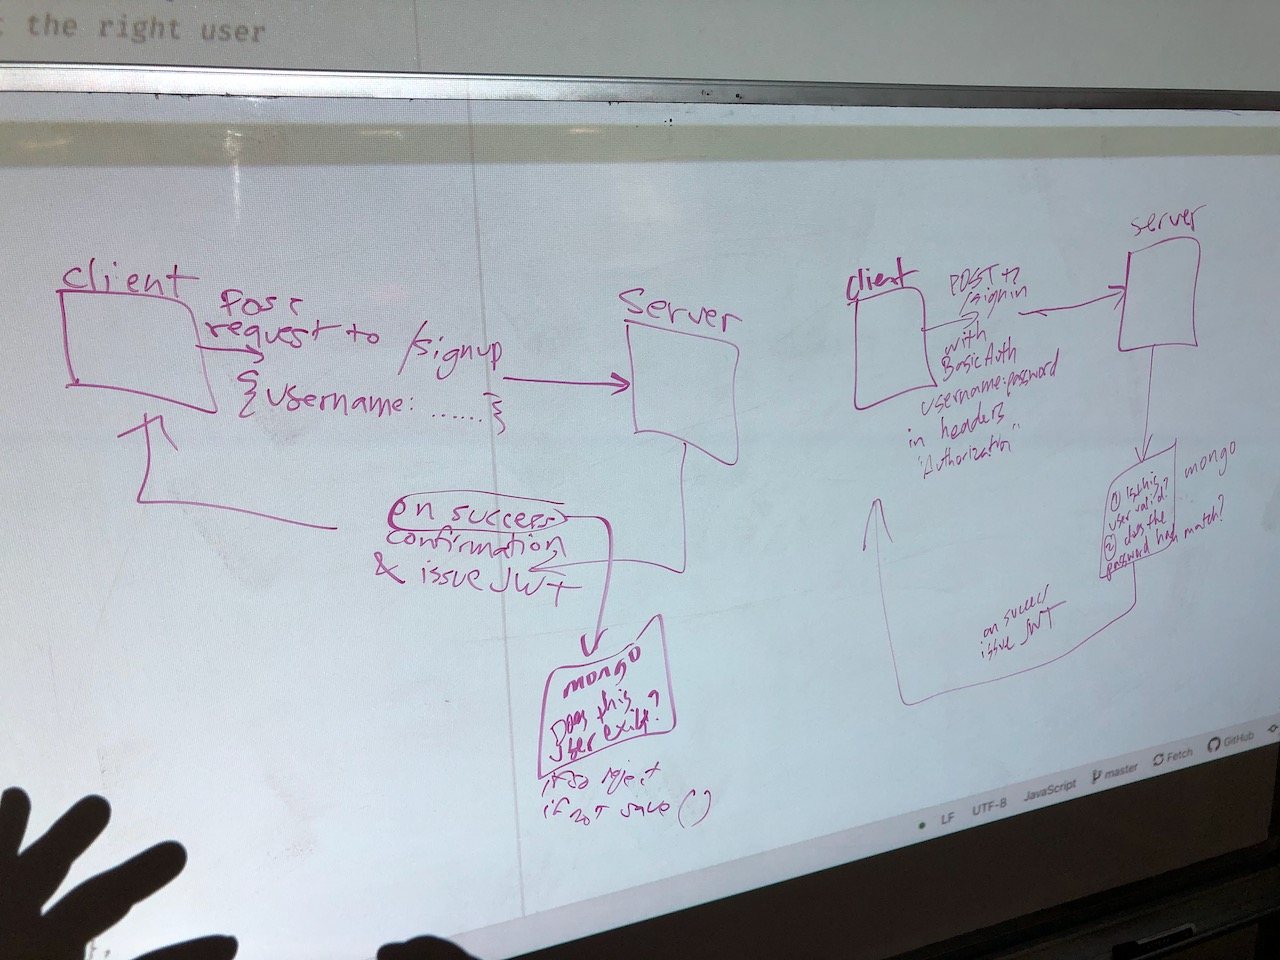 : the right user
client
POST
request to /signup
{username: ......}
Server
on success
confirmation
& issue JWT
mongo
Does this
user exist?
if so reject
if not save()
client
POST to
/signin
with
Basic Auth
username:password
in headers
"Authorization"
server
mongo
① Is this
user valid?
② does the
password hash match?
on success
issue JWT
LF UTF-8 JavaScript master Fetch GitHub